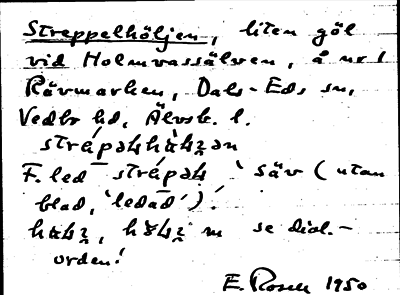 Streppelhöljen, liten göl
vid Holmvassälven, å nr 1
Rävmarken, Dals-Eds sn,
Vedbo hd, Älvsb. l.
F. led strépəɫ 'säv (utan
blad, 'ledad')'.
m se dial.-
orden!
E. Rosell 1950